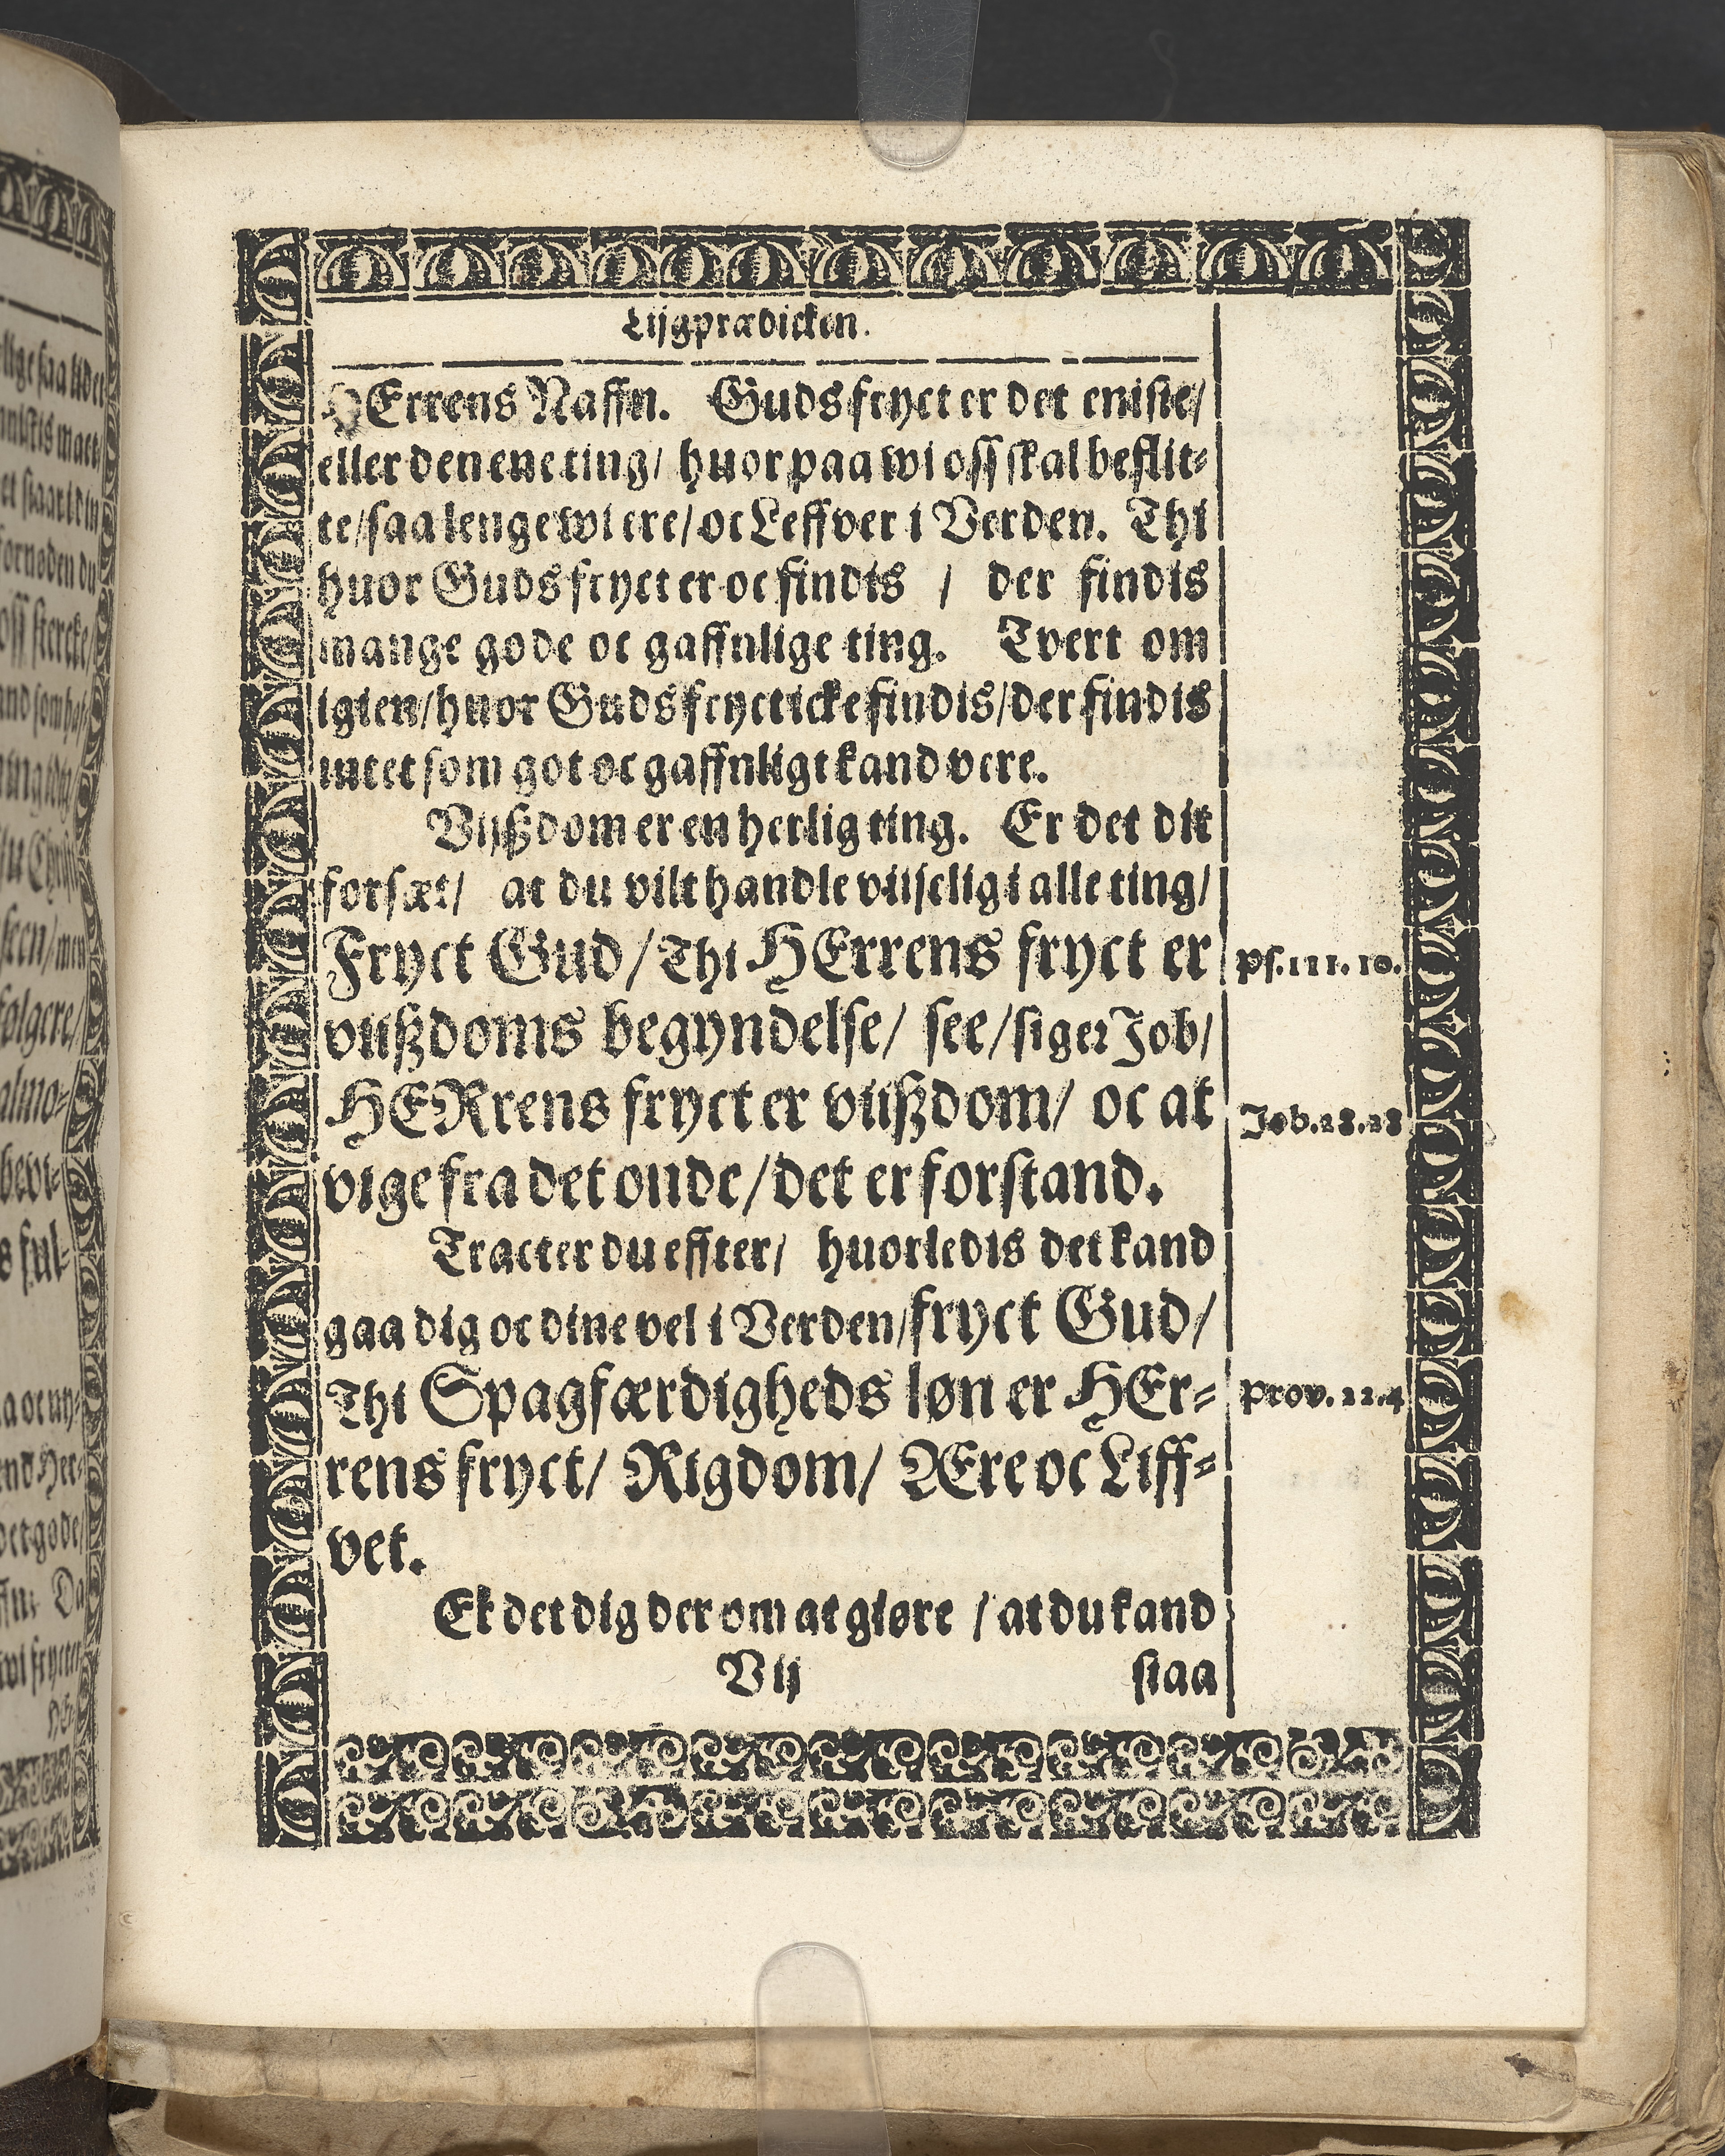 Lijgprædicken.
HErrens Naffn. Guds fryct er det eniste/
eller den ene ting/ huor paa wi oss skal beflit-
te/ saa lenge wi ere/ oc Leffver i Verden. Thi
huor Guds fryct er oc findis / der findis
mange gode oc gaffnlige ting. Tvert om
igien/ huor Guds fryct icke findis/ der findis
intet som got oc gaffnligt kand vere.
Vijßdom er en herlig ting. Er det dit
forsæt/ at du vilt handle viiselig i alle ting/
Fryct Gud/ Thi HErrens fryct er
Ps. 111. 10.
viißdoms begyndelse/ see/ siger Job/
HERrens fryct er viißdom/ oc at
Job. 28. 28
vige fra det onde/ det er forstand.
Tracter du effter/ huorledis det kand
gaa dig oc dine vel i Verden/ fryct Gud/
Thi Spagfærdigheds løn er HEr-
Prov. 22. 4
rens fryct/ Rigdom/ Ære oc Liff-
vet.
Er det dig der om at giøre / at du kand
V ij
staa